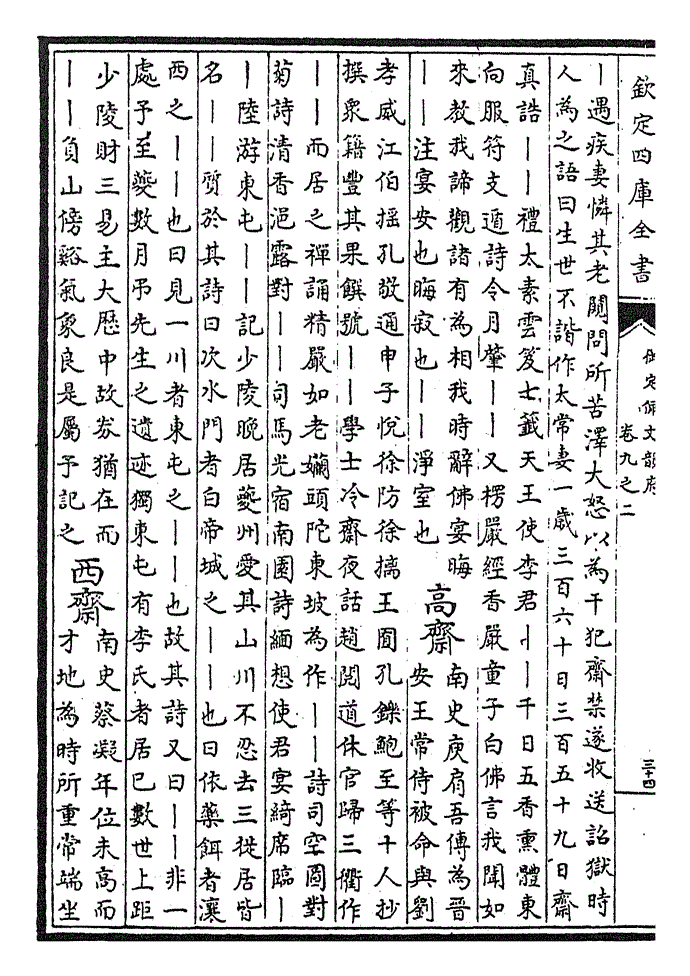 欽定四庫全書
御定佩文韻府
卷九之二
三十四
丨遇疾妻憐其老闚問所苦澤大怒以為干犯齋禁遂收送詔獄時
人為之語曰生世不諧作太常妻一歲三百六十日三百五十九日齋
真誥丨丨禮太素雲笈七籤天王使李君丨丨千日五香熏體東
向服符支遁詩令月肇丨丨又楞嚴經香嚴童子白佛言我聞如
來教我諦觀諸有為相我時辭佛宴晦
丨丨注宴安也晦寂也丨丨淨室也
高齋
南史庾肩吾傳為晉
安王常侍被命與劉
孝威江伯揺孔敬通申子悅徐防徐摛王囿孔鑠鮑至等十人抄
撰衆籍豐其果饌號丨丨學士冷齋夜話趙閱道休官歸三衢作
丨丨而居之禪誦精嚴如老嬾頭陀東坡為作丨丨詩司空圖對
菊詩清香浥露對丨丨司馬光宿南園詩緬想使君宴綺席臨丨
丨陸游東屯丨丨記少陵晚居夔州愛其山川不忍去三徙居皆
名丨丨質於其詩曰次水門者白帝城之丨丨也曰依藥餌者瀼
西之丨丨也曰見一川者東屯之丨丨也故其詩又曰丨丨非一
處予至夔數月弔先生之遺迹獨東屯有李氏者居已數世上距
少陵財三易主大歴中故劵猶在而
丨丨負山傍谿氣象良是屬予記之
西齋
南史蔡凝年位未高而
才地為時所重常端坐